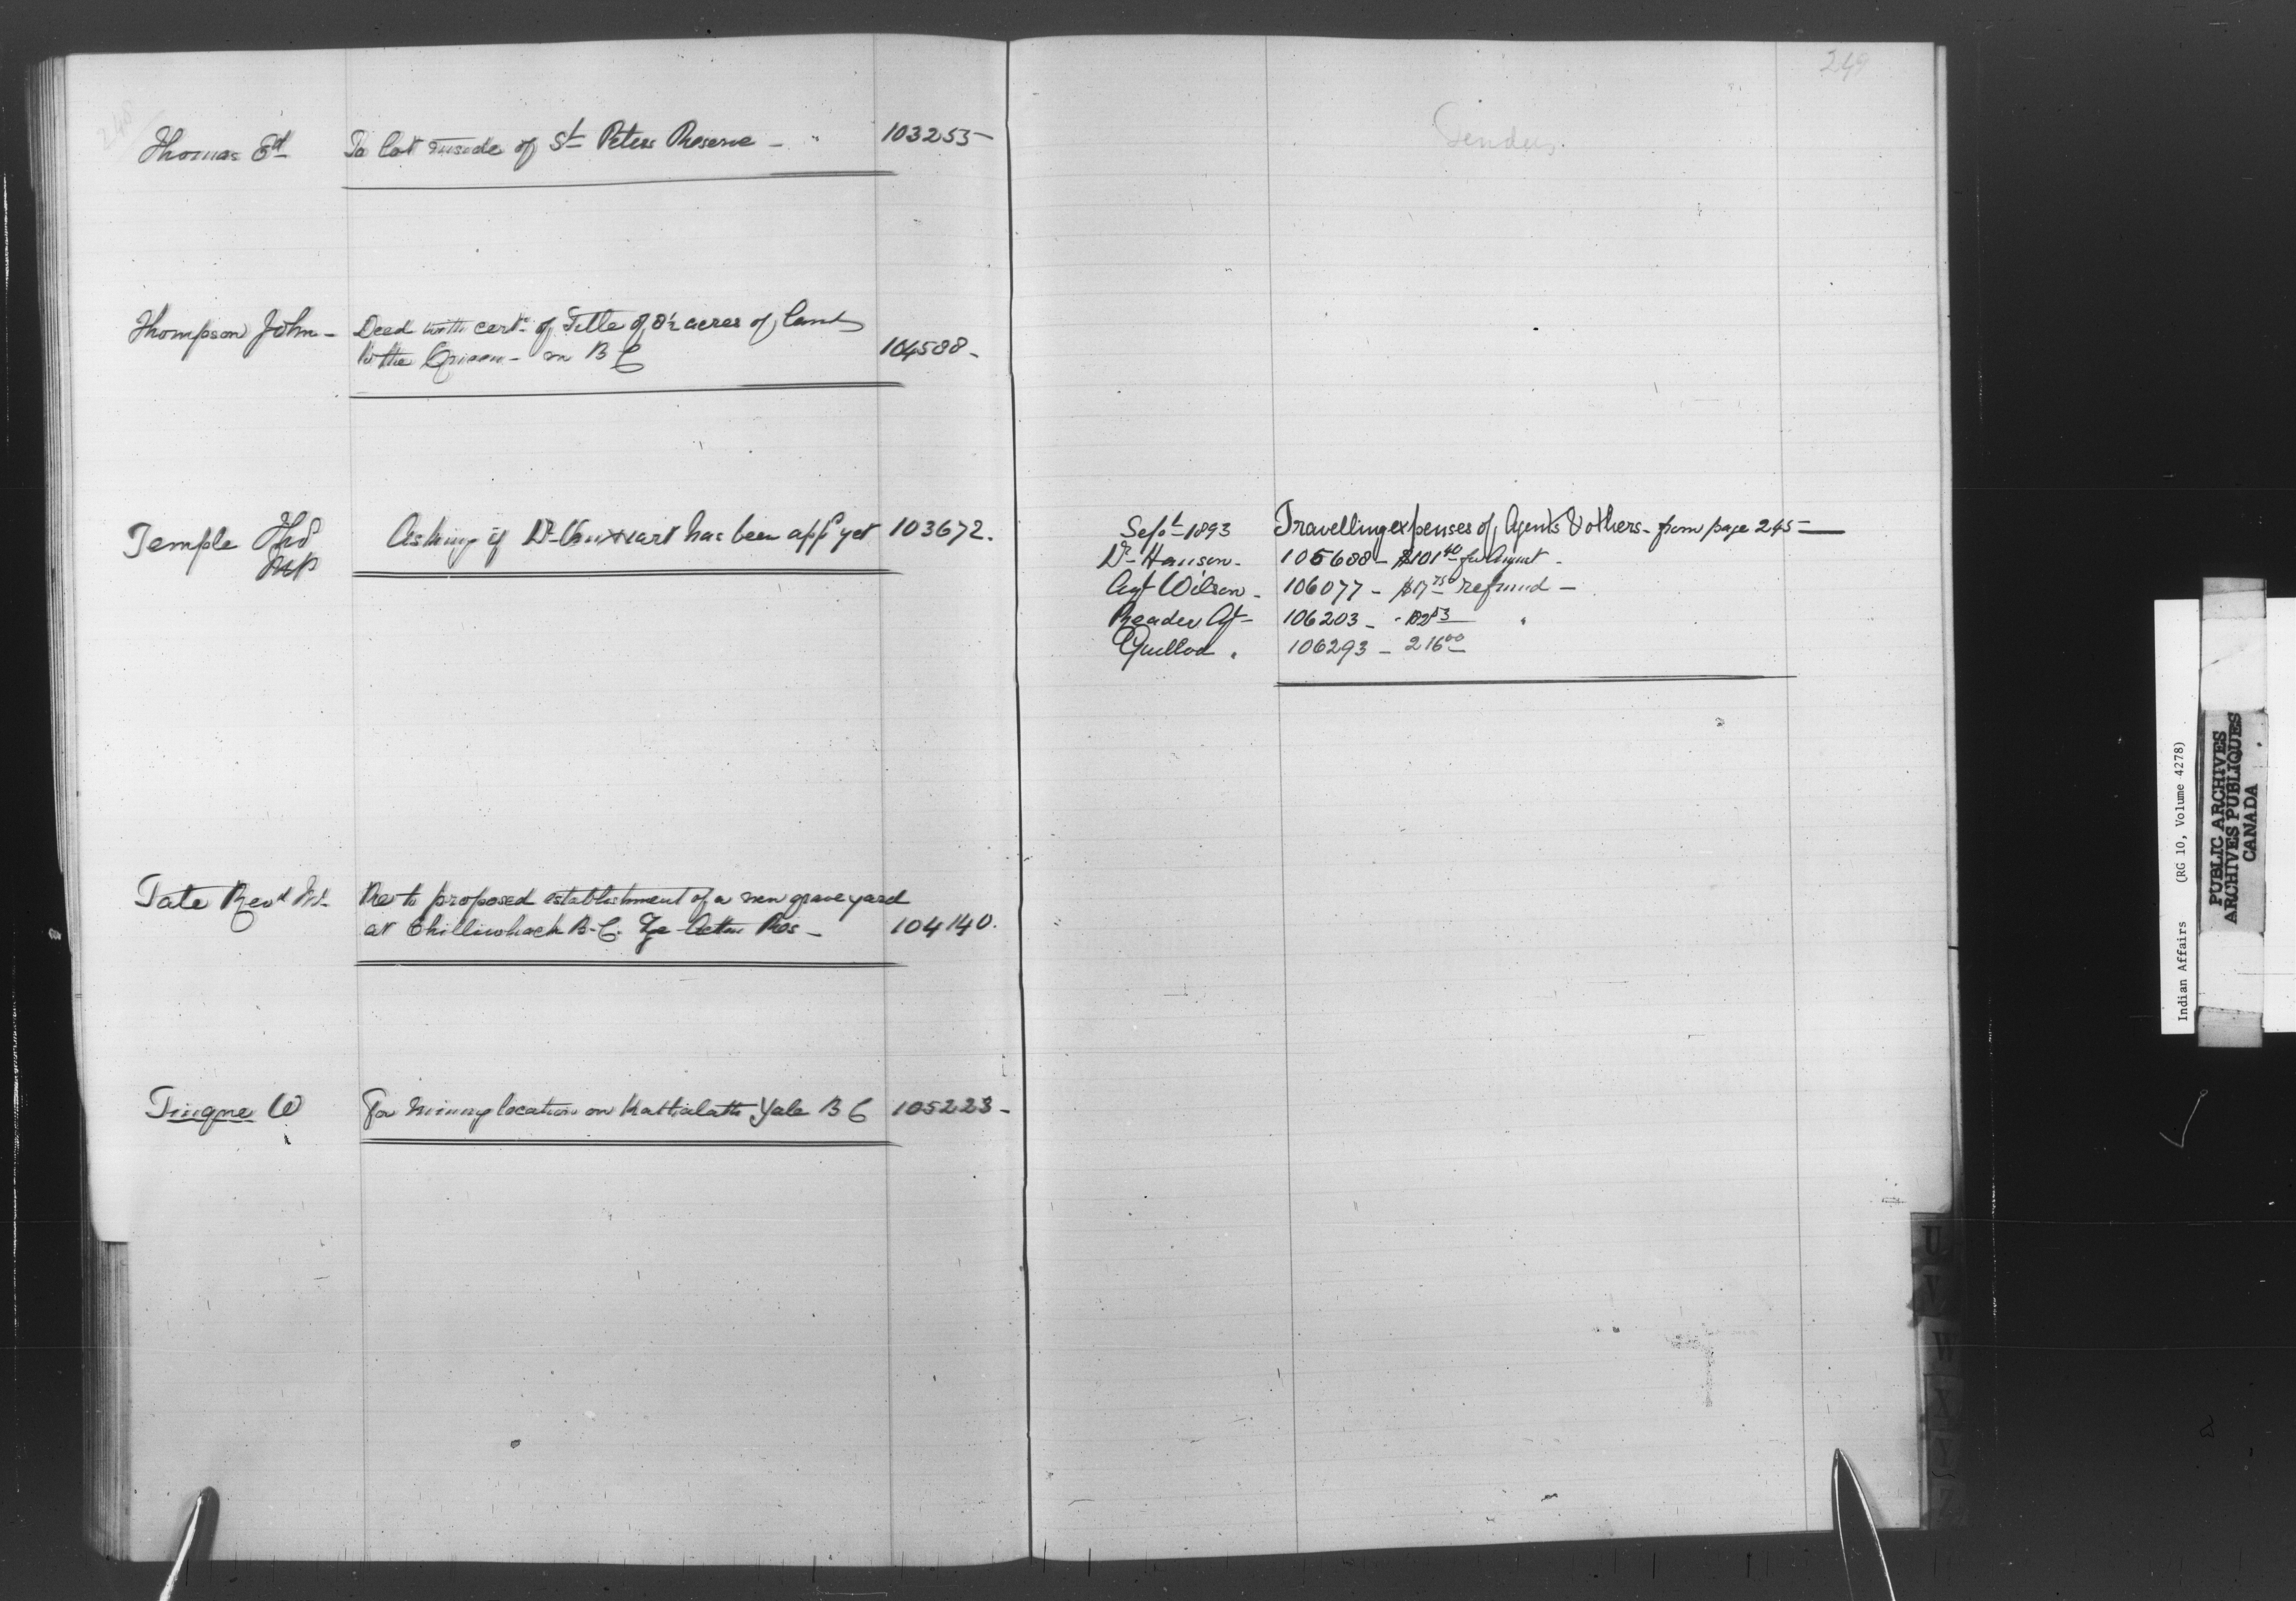 248
Thomas Ed To lot inside of St Peters Reserve - " 103255-
Thompson John - Deed with cert. of Title of 8½ acres of land
to the Queen - in B C 104588-
Temple Thos Asking if Dr has been appd yet 103672.
MP
Tate Revd Re to proposed establishment of a new graveyard
at Chilliwhack B.C. Res - 104140.
Tingne W For Mining location on Yale B C 105223-
249
Tenders.
Sept 1893 Travelling expenses of Agents & others - from page 245-
Dr Hanson - 105688 - $101 40 for August -
Agt Wilson - 106077 - refund -
Reader Agt - 106203 - "
Guillod " 106293 - 216 00
U
V
W
X
Y
Z
Indian Affairs (RG 10, Volume 4278)
PUBLIC ARCHIVES
ARCHIVES PUBLIQUES
CANADA